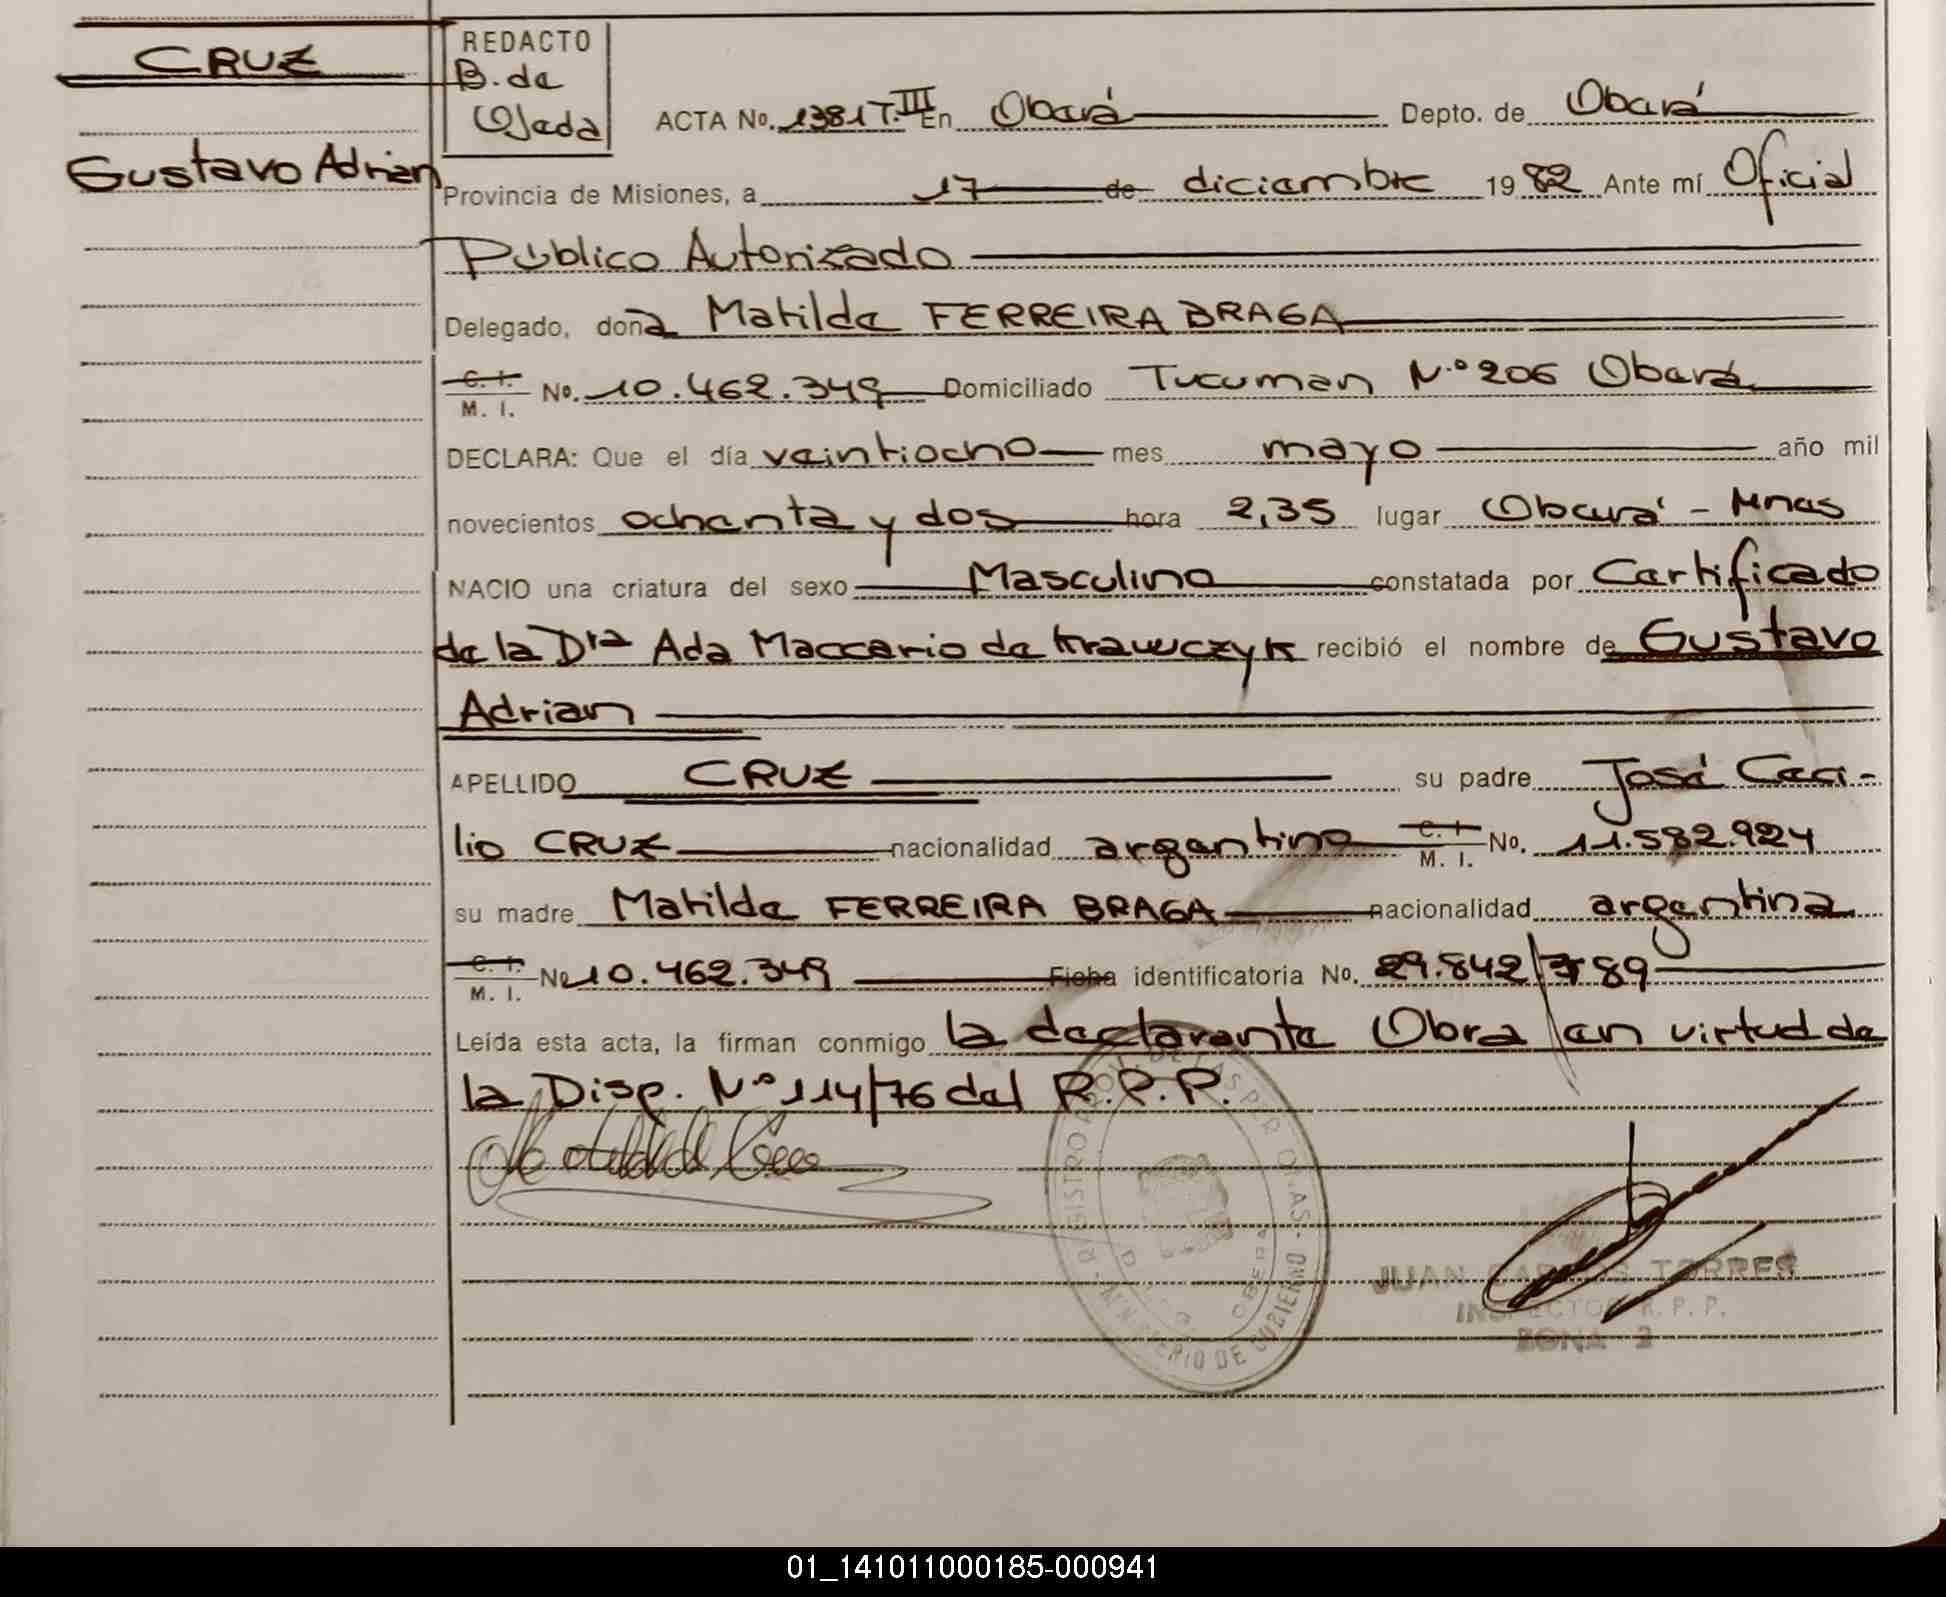 CRUZ
Gustavo Adrian
REDACTO
B. de
Ojeda
ACTA No. 1381 T. III En Oberá Depto. de Oberá
Provincia de Misiones, a 17 de diciembre 1982 Ante mí Oficial
Público Autorizado
Delegado, doña Matilde FERREIRA BRAGA
C. I.
M. I. No. 10.462.349 Domiciliado Tucuman N.º 206 Oberá
DECLARA: Que el día veintiocho mes mayo año mil
novecientos ochenta y dos hora 2,35 lugar Oberá - Mnes
NACIO una criatura del sexo Masculino constatada por Certificado
de la Dra Ada Maccario de Krawczyk recibió el nombre de Gustavo
Adrian
APELLIDO CRUZ su padre José Ceci-
lio CRUZ nacionalidad argentino C. I. M. I. No. 11.582.924
su madre Matilde FERREIRA BRAGA nacionalidad argentina
C. I.
M. I. No 10.462.349 Ficha identificatoria No. 29.842/ 89
Leída esta acta, la firman conmigo la declarante Obra en virtud de
la Disp. Nº 114/76 del R.P.P.
REGISTRO PROV. DE LAS PERSONAS - MINISTERIO DE GOBIERNO
OBERA
JUAN CARLOS TORRES
INSPECTOR R. P. P.
ZONA 2
01_141011000185-000941